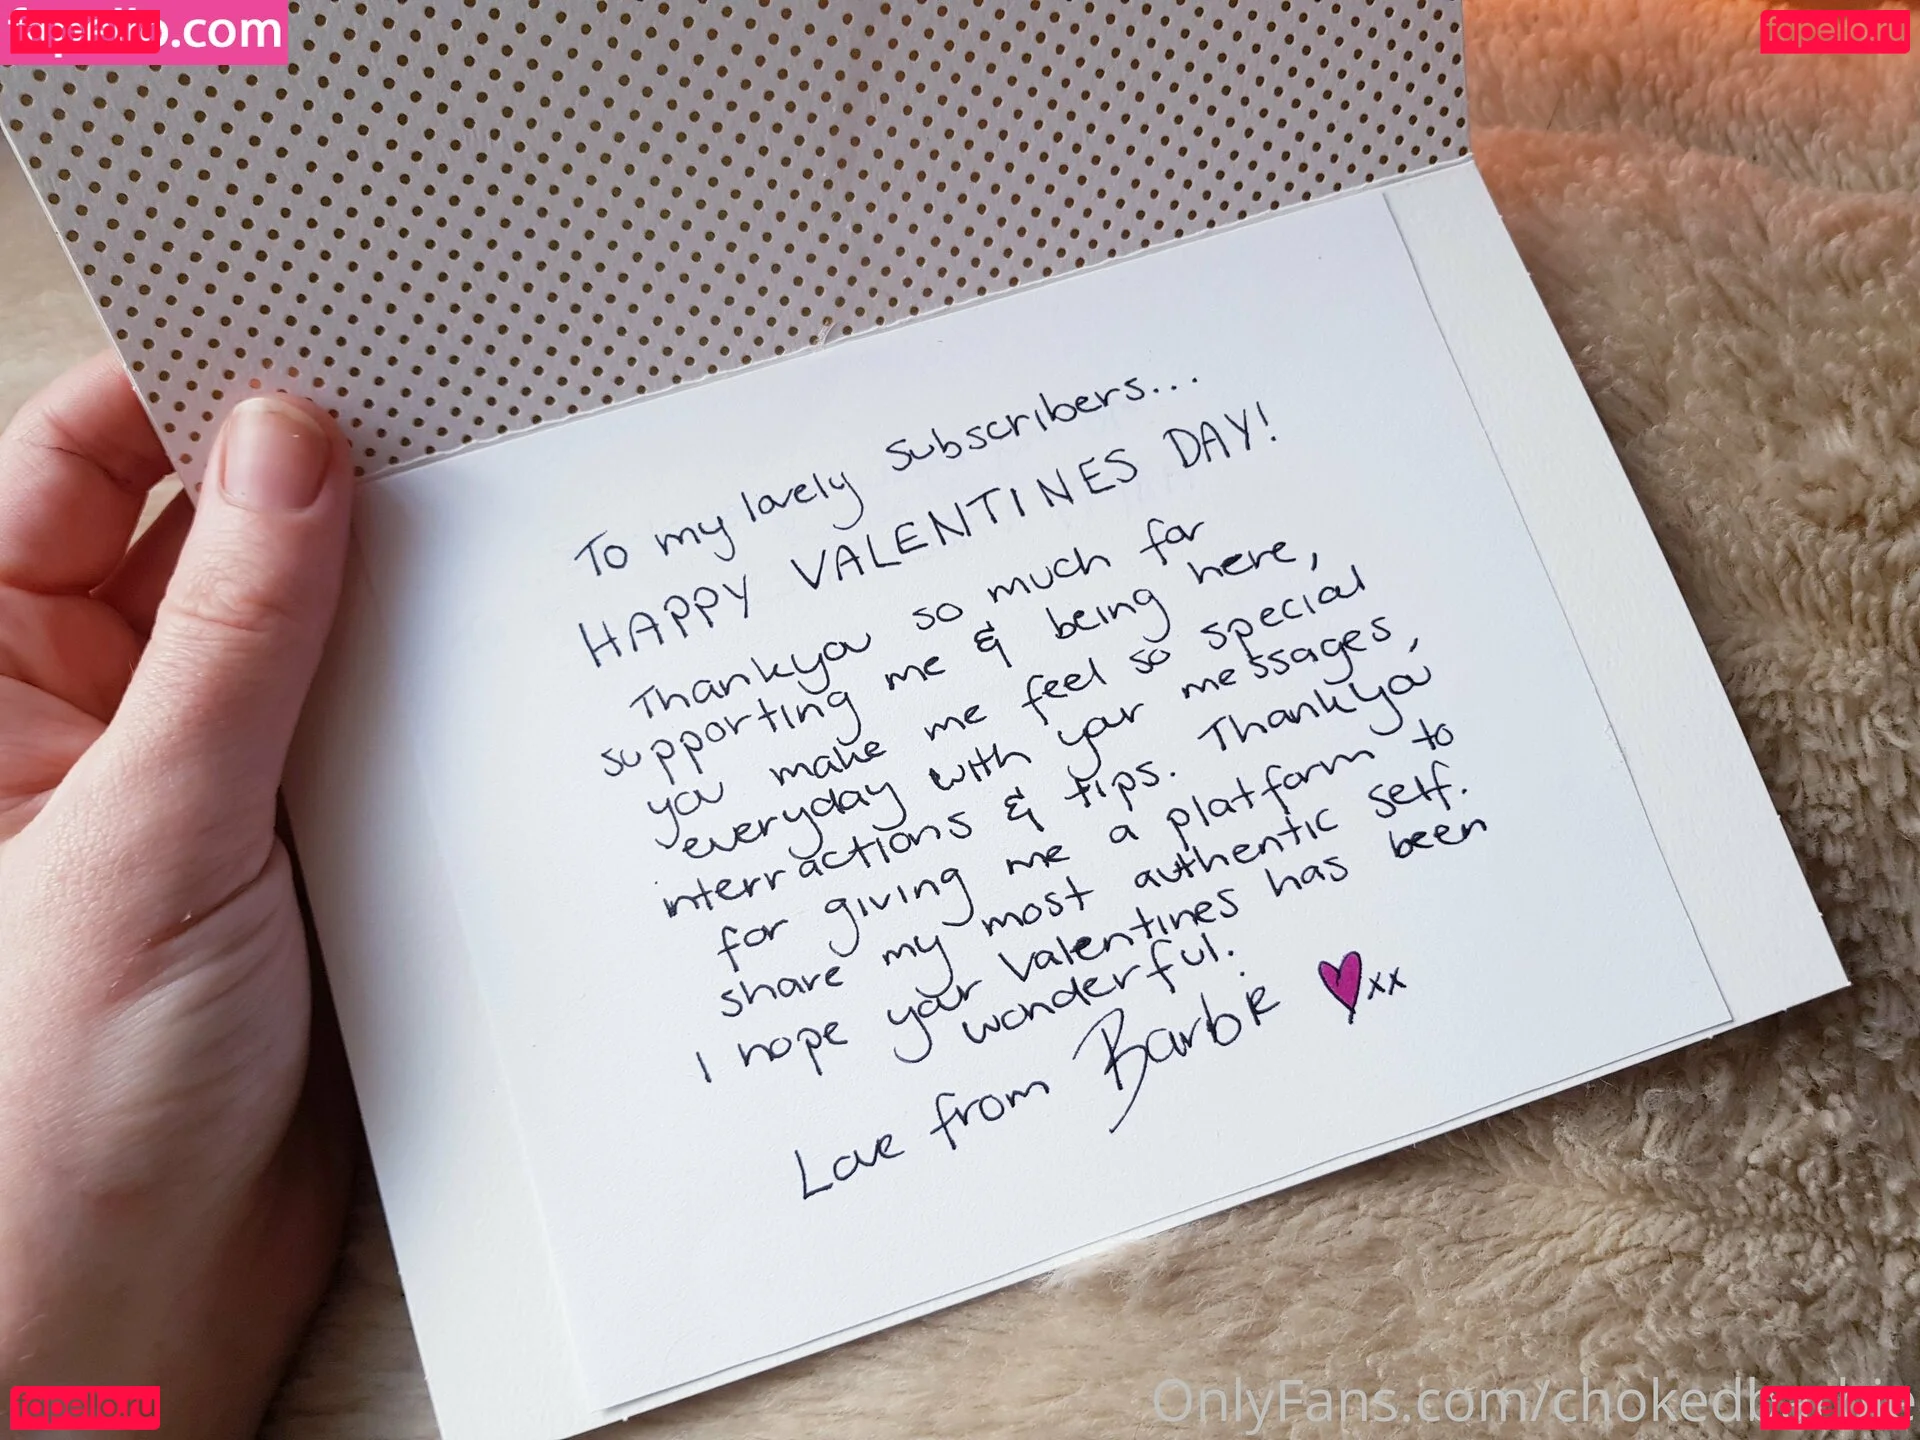 fapello.ru
.com
fapello.ru
To my lovely subscribers...
HAPPY VALENTINES DAY!
Thankyou so much for
supporting me & being here,
you make me feel so special
everyday with your messages,
interractions & tips. Thankyou
for giving me a platform to
share my most authentic self.
I hope your valentines has been
wonderful.
Love from Barbie xx
fapello.ru
OnlyFans.com/chokedb
fapello.ru